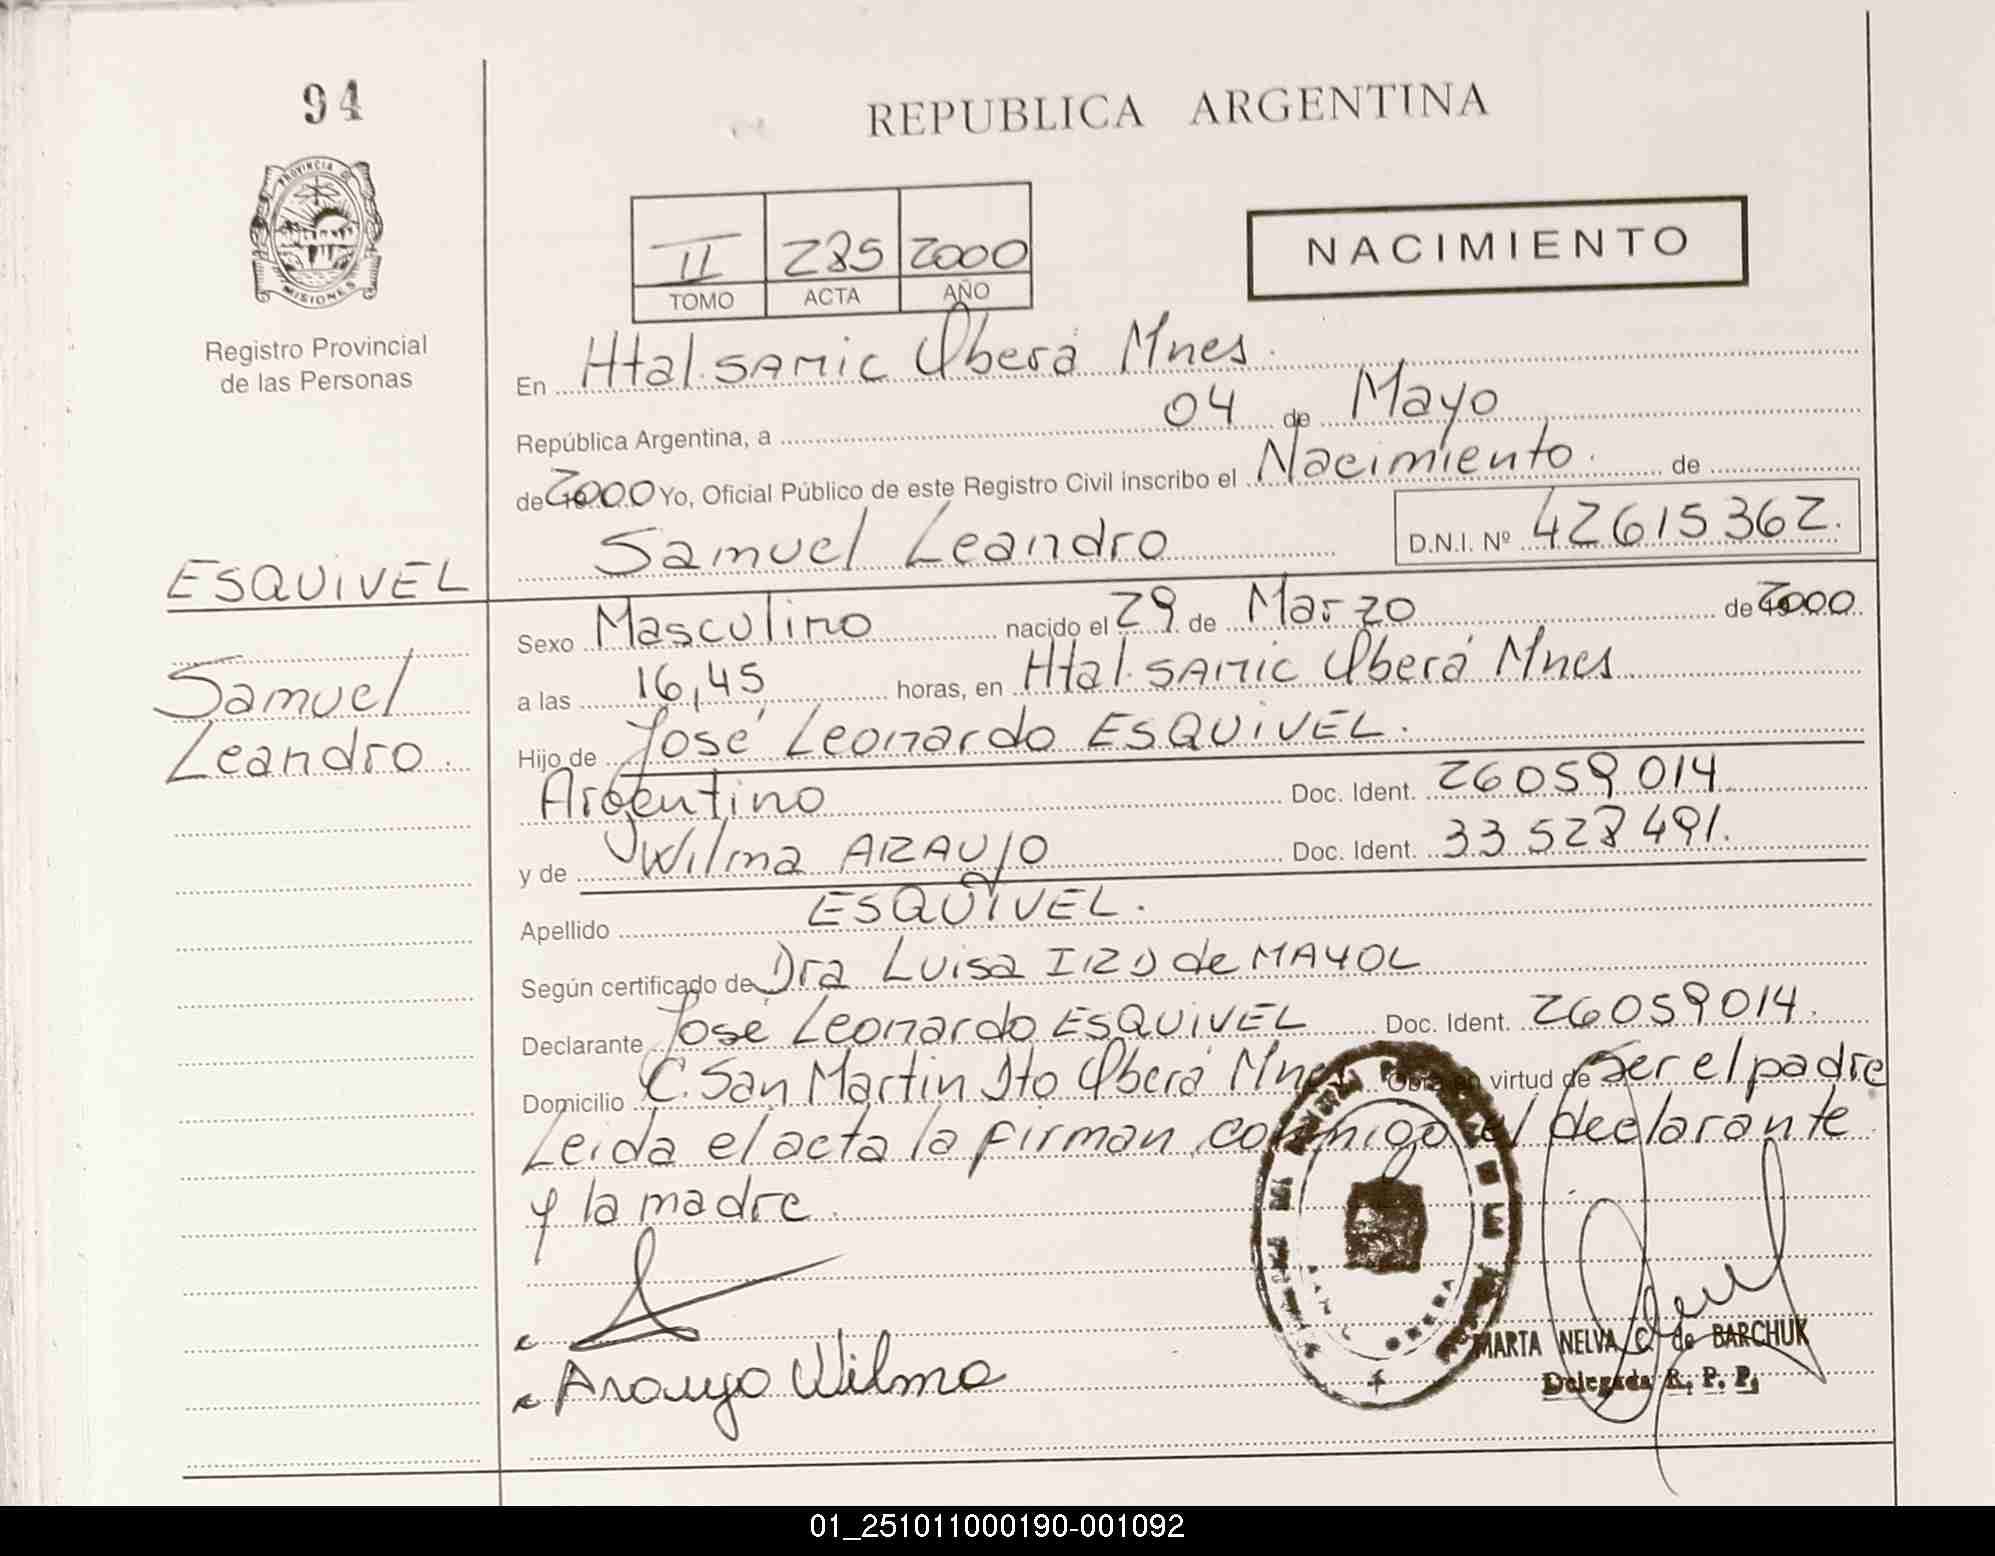 94
REPUBLICA ARGENTINA
PROVINCIA DE MISIONES
II 285 2000
TOMO ACTA AÑO
NACIMIENTO
Registro Provincial
de las Personas
En Htal. SAMIC Oberá Mnes.
República Argentina, a 04 de Mayo
de 2000 Yo, Oficial Público de este Registro Civil inscribo el Nacimiento. de
Samuel Leandro D.N.I. Nº 42615362.
ESQUIVEL
Samuel
Leandro.
Sexo Masculino nacido el 29 de Marzo de 2000
a las 16,45 horas, en Htal. SAMIC Oberá Mnes
Hijo de José Leonardo ESQUIVEL.
Argentino Doc. Ident. 26059014
y de Wilma ARAUJO Doc. Ident. 33528491.
Apellido ESQUIVEL.
Según certificado de Dra Luisa de MAYOL
Declarante José Leonardo ESQUIVEL Doc. Ident. 26059014.
Domicilio C. San Martin Dto Oberá Mnes Obra en virtud de Ser el padre
Leida el acta la firman conmigo el declarante
y la madre.
Araujo Wilma
OBERA
MARTA NELVA C. de BARCHUK
Delegada R. P. P.
01_251011000190-001092